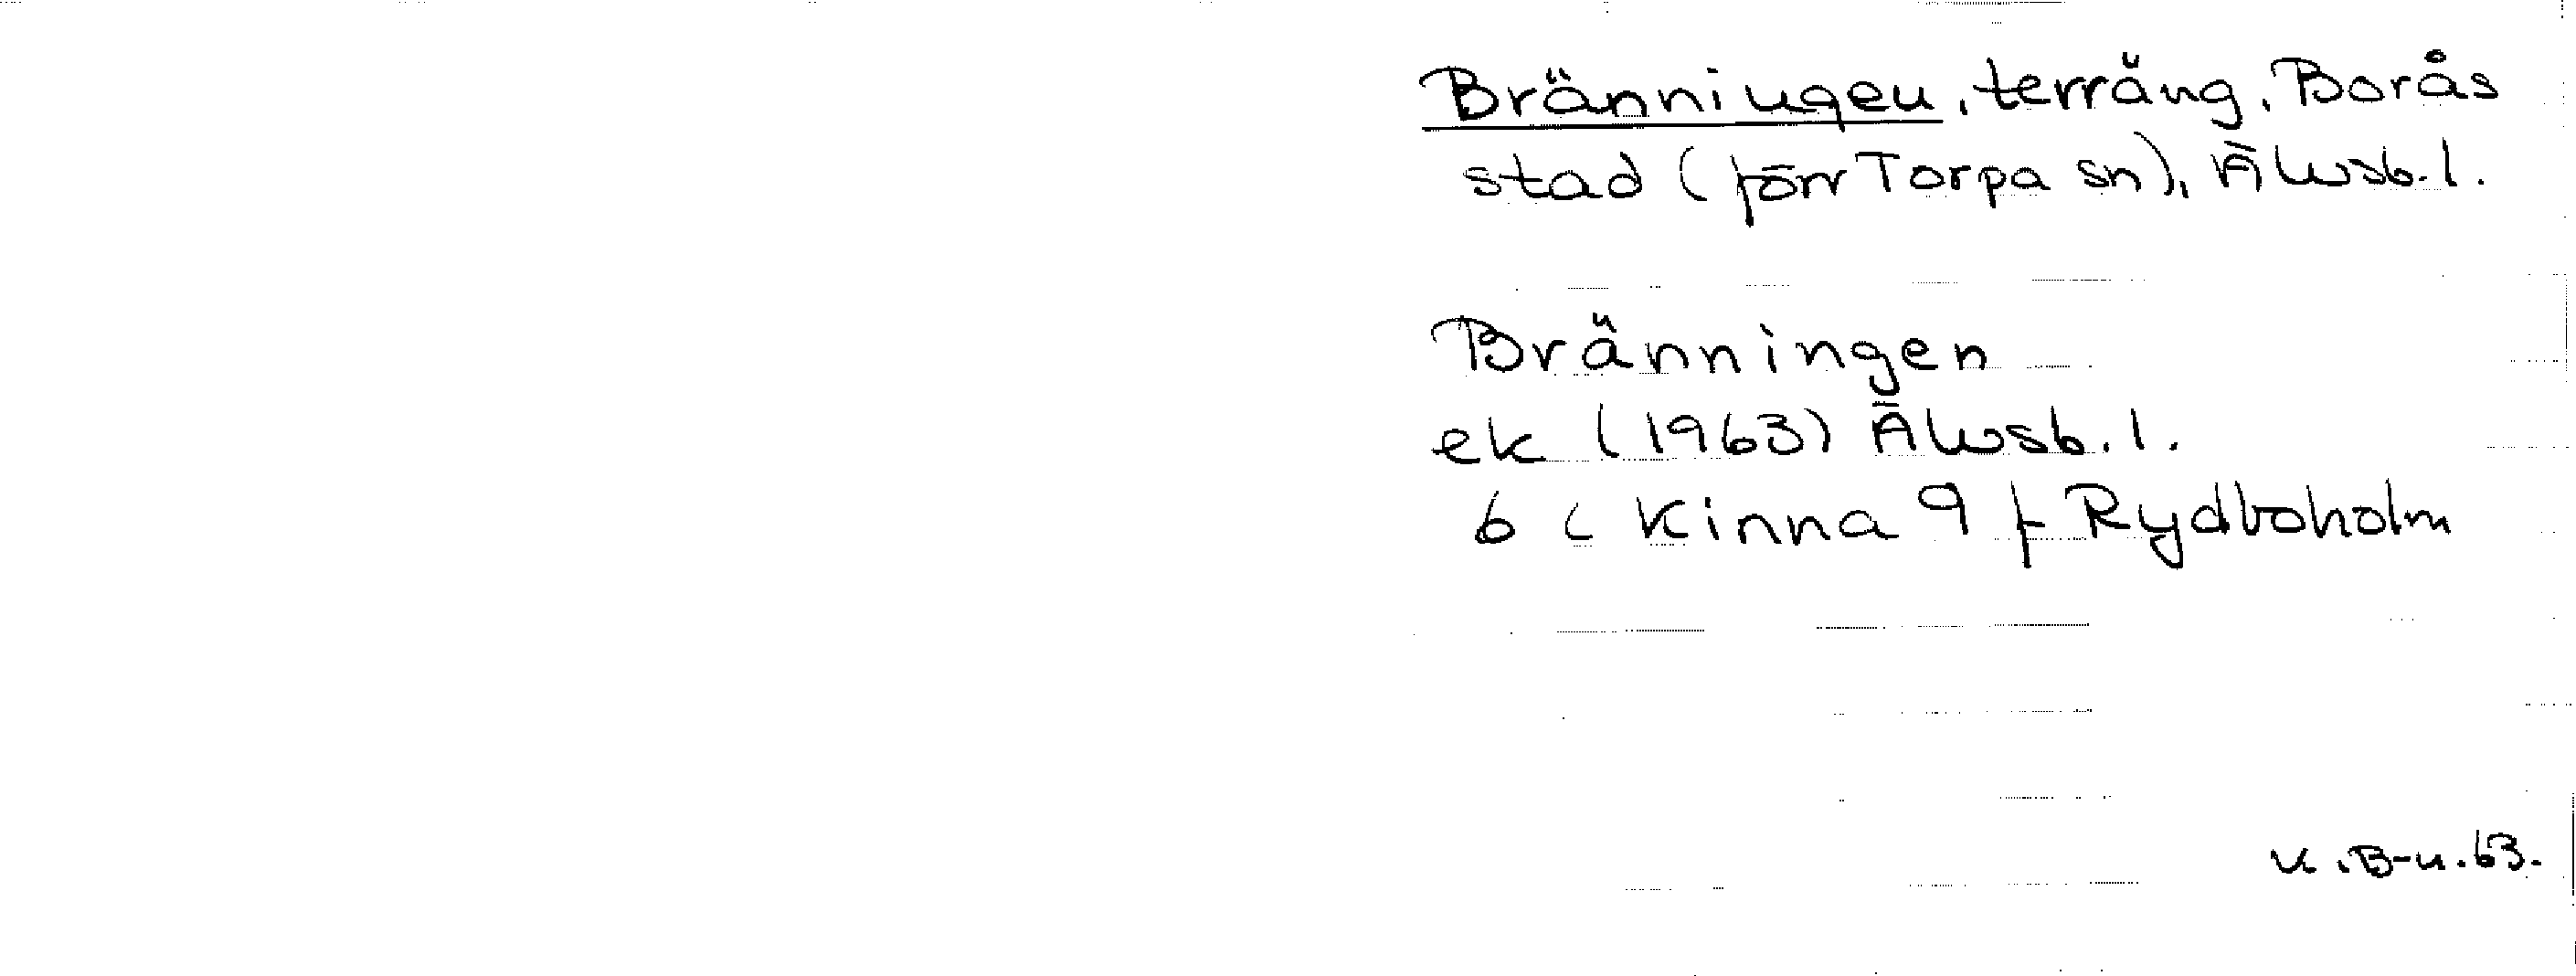 Bränningen, terräng, Borås
stad (förr Torpa sn), Älvsb. l.
Bränningen
ek (1963) Älvsb. l.
6 C Kinna 9 f Rydboholm
K. B-n. 63.